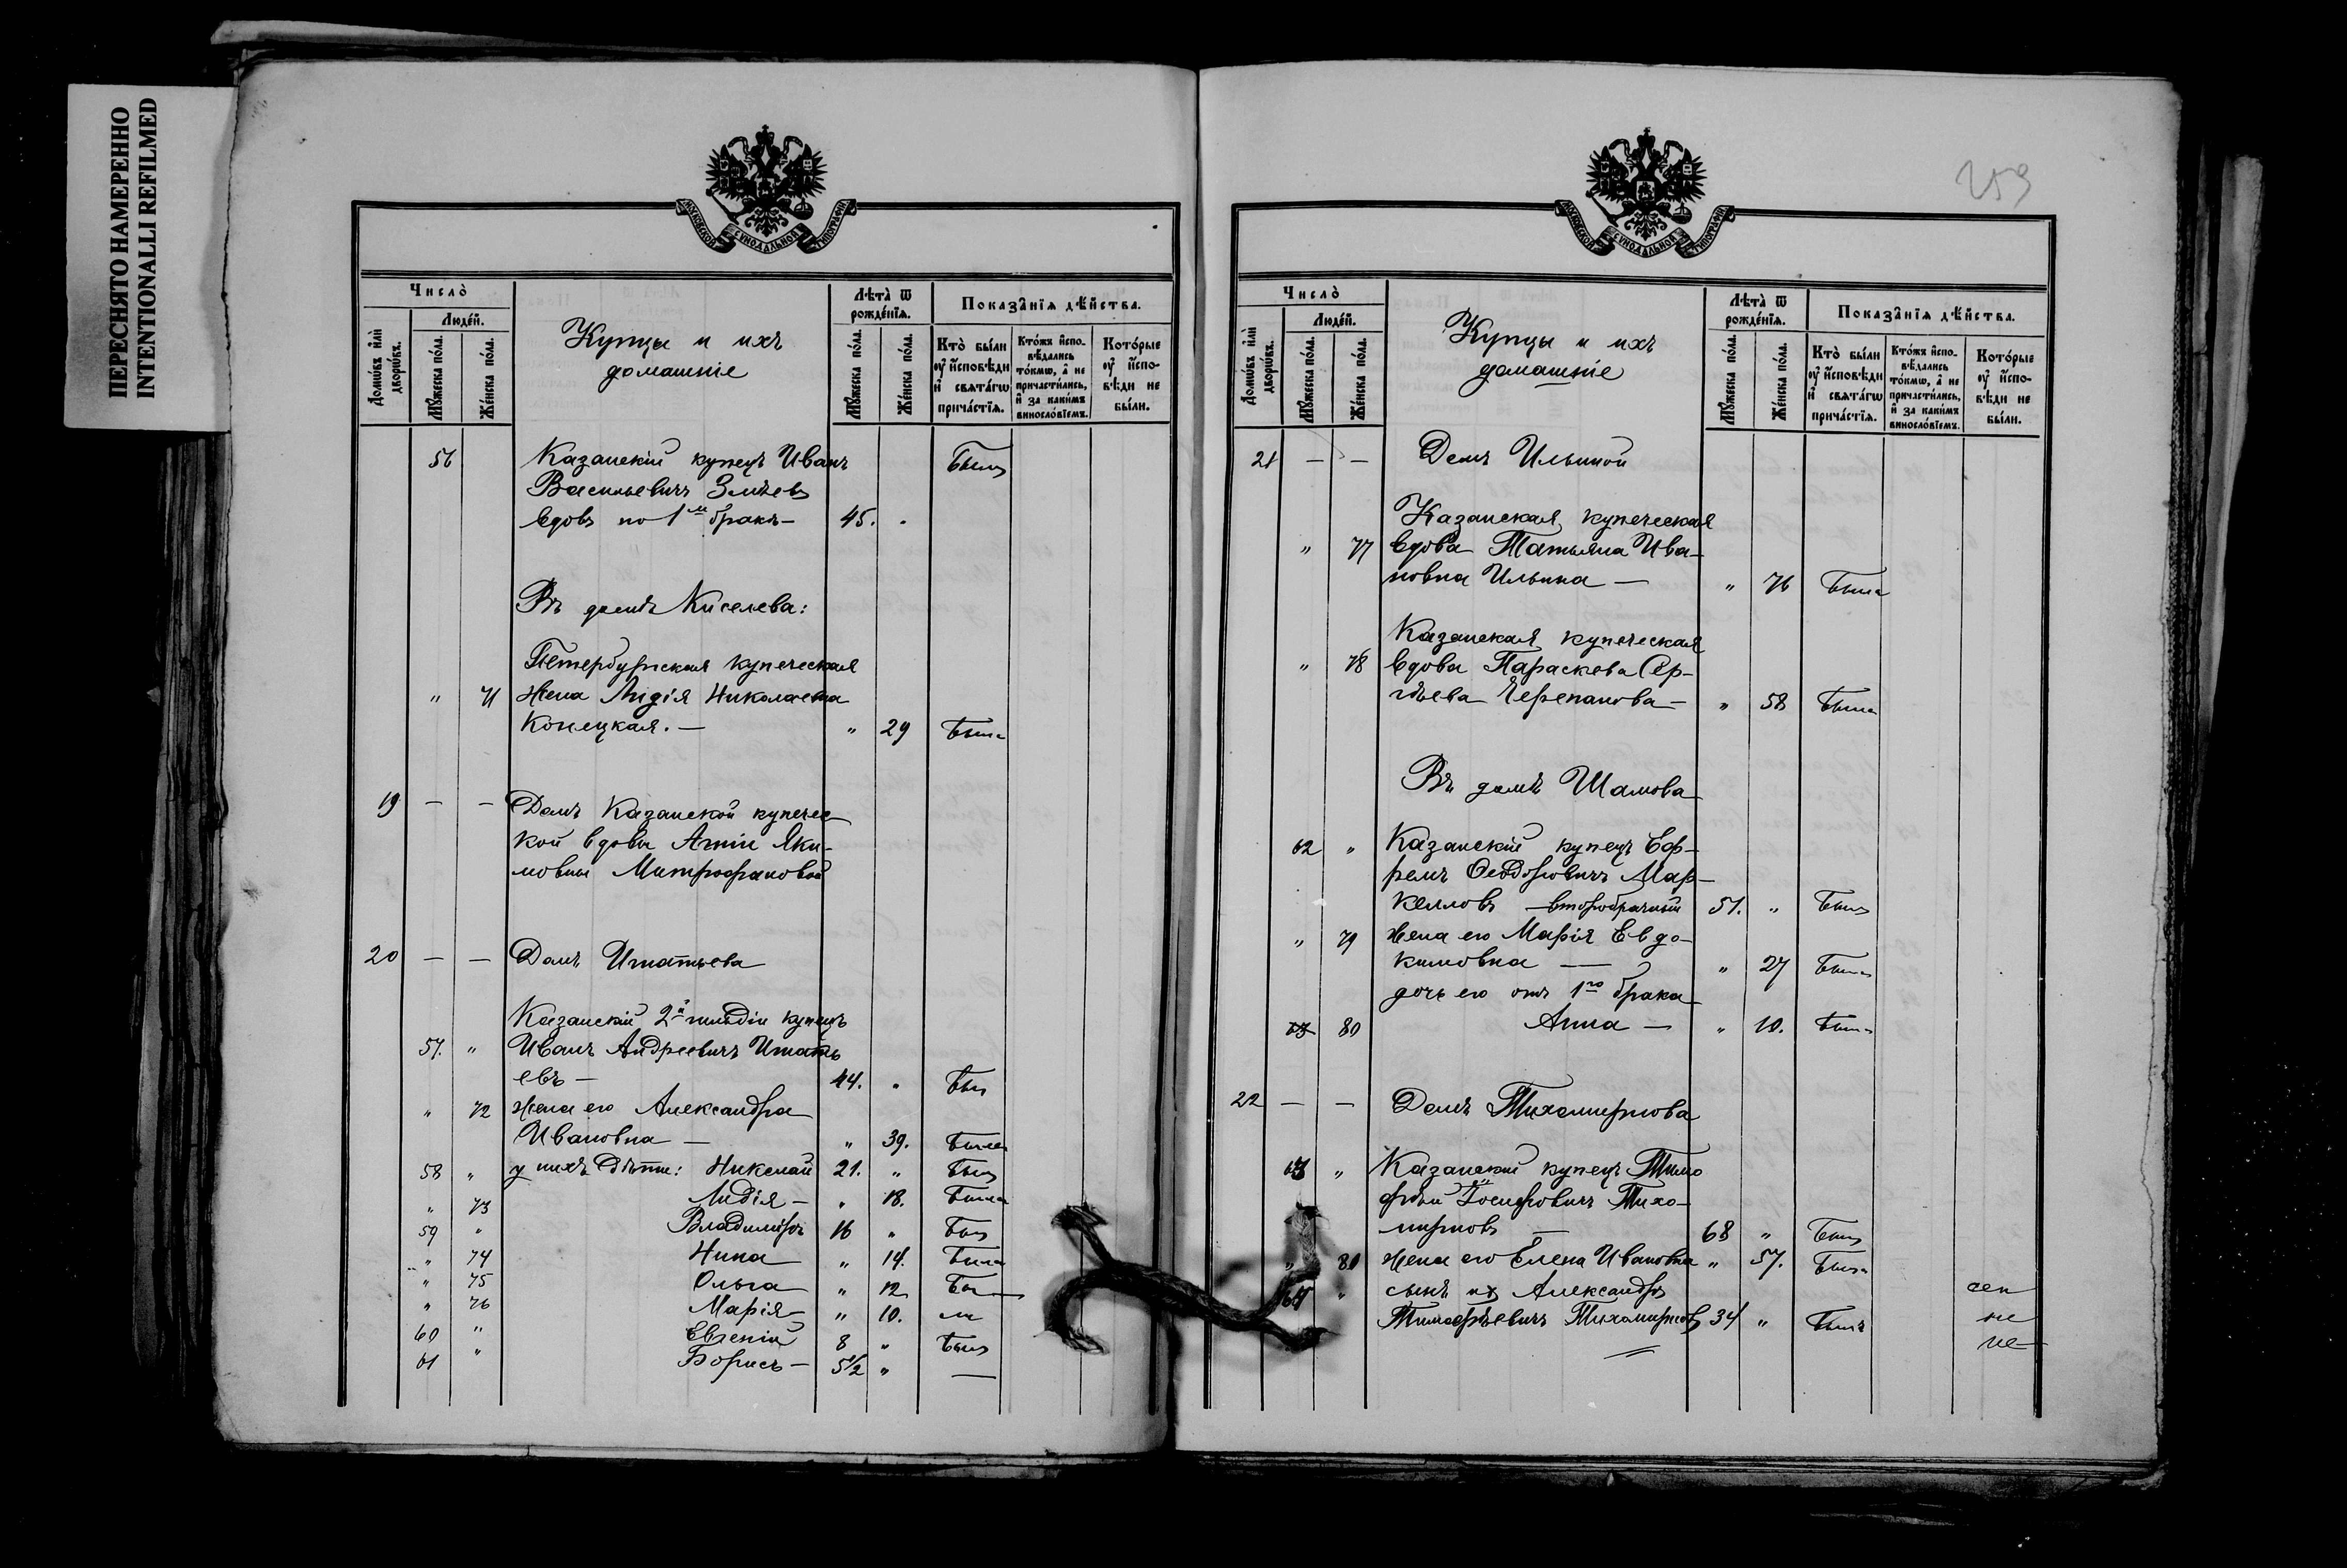 ПЕРЕСНЯТО НАМЕРЕННО
INTENTIONALLI REFILMED
МОСКОВСКОЙ СУНОДАЛЬНОЙ ТИПОГРАФІИ
Число̀
Домѡ́въ и҆лѝ дворѡ́въ.
Люде́й.
Мꙋ́жеска по́ла.
Же́нска по́ла.
Купцы и ихъ
домашніе
Лѣта̀ ѿ рожде́нїѧ.
Мꙋ́жеска по́ла.
Же́нска по́ла.
Показа̂нїѧ дѣ́йства.
Кто̀ бы́ли ᲂу҆ и҆сповѣди и҆ свѧта́гѡ прича́стїѧ.
Кто́жъ и҆сповѣдались то́кмѡ, а҆ не причасти́лись, и҆ за каки́мъ винословїемъ.
Кото́рые ᲂу҆ и҆сповѣди не бы́ли.
56 Казанскій купецъ Иванъ Былъ
Васильевичъ Змѣевъ
вдовъ по 1м бракѣ — 45. "
Въ домѣ Киселева:
Петербургская купеческая
" 71 жена Лидія Николаевна
Конецкая. — " 29 Была
19 — — Домъ Казанской купечес
кой вдовы Агніи Яки-
мовны Митрофановой
20 — — Домъ Игнатьева
Казанскій 2й гильдіи купецъ
57. " Иванъ Андреевичъ Игнать
евъ — 44. " Былъ
" 72 жена его Александра
Ивановна — " 39. Была
58 " у нихъ дѣти: Николай 21. " Былъ
" 73 Лидія — " 18. Была
59 " Владиміръ 16 " Былъ
" 74 Нина " 14. Была
" 75 Ольга " 12
" 76 Марія — " 10.
60 " Евгеній 8 " Былъ
61 " Борисъ — 5½ " —
259
МОСКОВСКОЙ СУНОДАЛЬНОЙ ТИПОГРАФІИ
Число̀
Домѡ́въ и҆лѝ дворѡ́въ.
Люде́й.
Мꙋ́жеска по́ла.
Же́нска по́ла.
Купцы и ихъ
домашніе
Лѣта̀ ѿ рожде́нїѧ.
Мꙋ́жеска по́ла.
Же́нска по́ла.
Показа̂нїѧ дѣ́йства.
Кто̀ бы́ли ᲂу҆ и҆сповѣди и҆ свѧта́гѡ прича́стїѧ.
Кто́жъ и҆сповѣдались то́кмѡ, а҆ не причасти́лись, и҆ за каки́мъ винословїемъ.
Кото́рые ᲂу҆ и҆сповѣди не бы́ли.
21 — — Домъ Ильиной
Казанская купеческая
" 77 вдова Татьяна Ива-
новна Ильина — " 76 Была
Казанская купеческая
" 78 вдова Параскева Сер-
гѣева Черепанова — " 58 Была
Въ домѣ Шамова
62 " Казанскій купецъ Еф-
ремъ Ѳеодоровичъ Мар-
келловъ — второбрачный 51. " Былъ
" 79 жена его Марія Евдо-
кимовна — " 27 Была
дочь его отъ 1го брака
63 80 Анна — " 10. Была
22 — — Домъ Тихомирнова
63 " Казанскій купецъ Тимо
фѣй Іосифовичъ Тихо-
мирновъ — 68 " Былъ
" 80 жена его Елена Ивановна " 57. Была
64 " сынъ их Александръ
Тимофѣевичъ Тихомирновъ 34 " Былъ